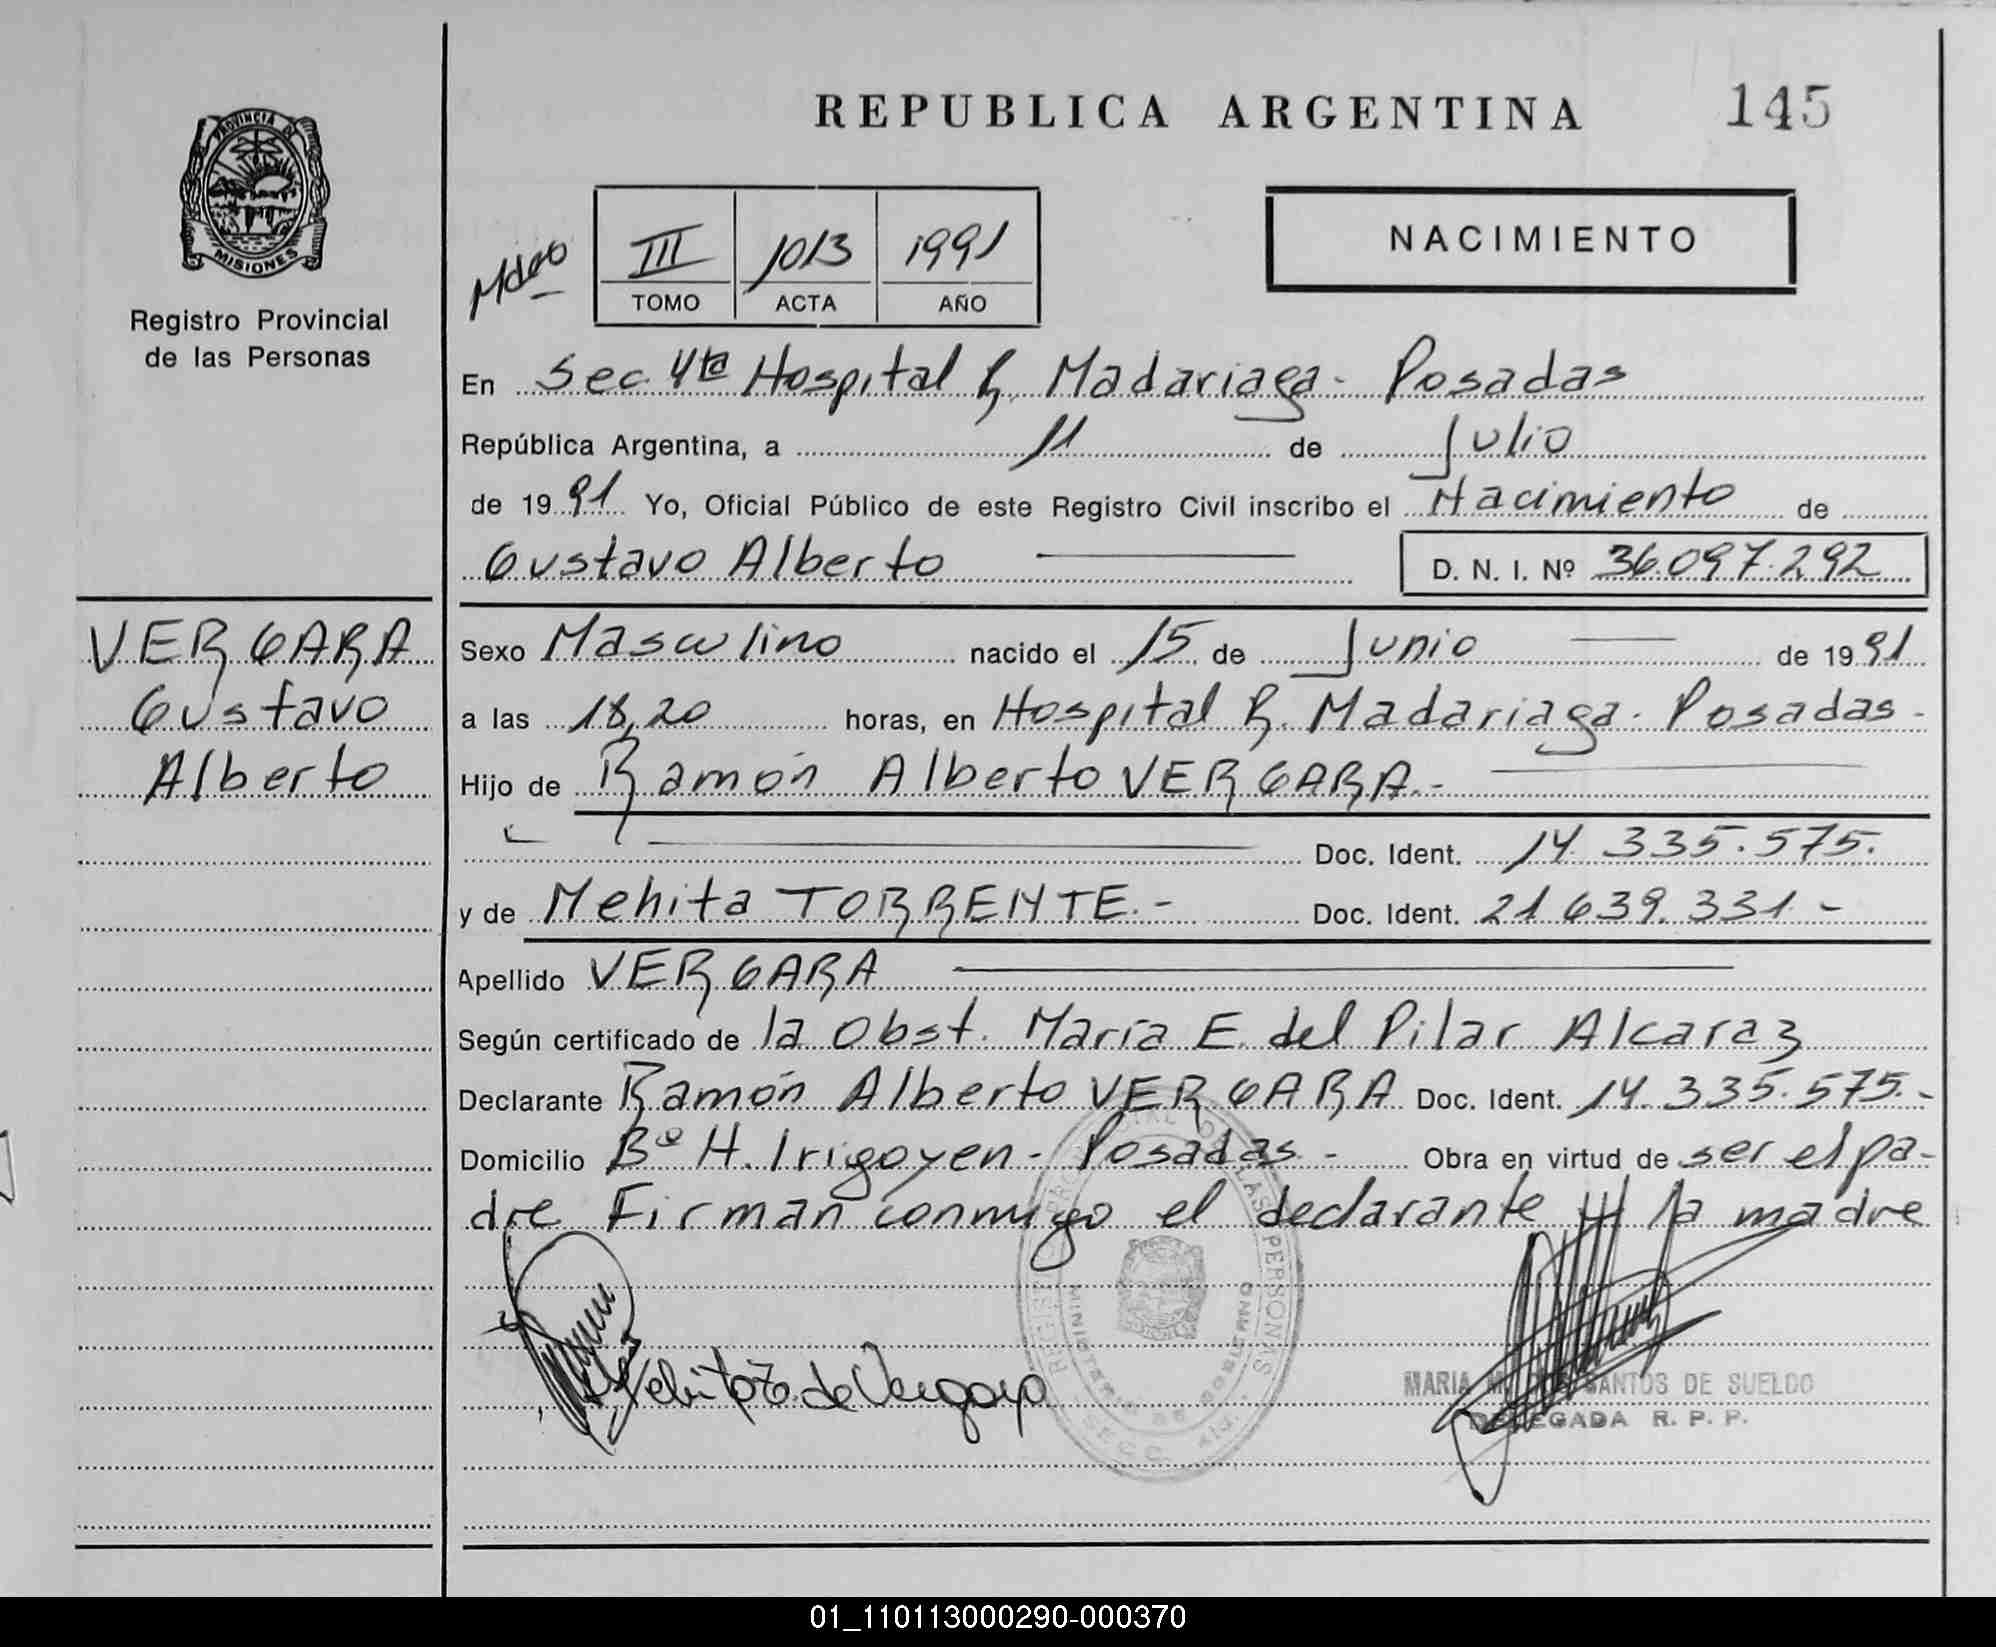 REPUBLICA ARGENTINA 145
PROVINCIA DE
MISIONES
Registro Provincial
de las Personas
NACIMIENTO
III 1013 1991
TOMO ACTA AÑO
En Sec 4ta Hospital R. Madariaga - Posadas
República Argentina, a 11 de Julio
de 1991 Yo, Oficial Público de este Registro Civil inscribo el Nacimiento de
Gustavo Alberto D. N. I. Nº 36.097.292
VERGARA
Gustavo
Alberto
Sexo Masculino nacido el 15 de Junio de 1991
a las 18,20 horas, en Hospital R. Madariaga. Posadas -
Hijo de Ramón Alberto VERGARA.-
Doc. Ident. 14.335.575.
y de Nehita TORRENTE.- Doc. Ident. 21.639.331.-
Apellido VERGARA
Según certificado de la Obst. María E. del Pilar Alcaraz
Declarante Ramón Alberto VERGARA Doc. Ident. 14.335.575.-
Domicilio Bº H. Irigoyen - Posadas - Obra en virtud de ser el pa-
dre Firman conmigo el declarante y la madre
de Vergara
REGISTRO PROVINCIAL DE LAS PERSONAS
MINISTERIO DE GOBIERNO
SECC. 4ta.
MARIA M. DOS SANTOS DE SUELDO
DELEGADA R. P. P.
01_110113000290-000370